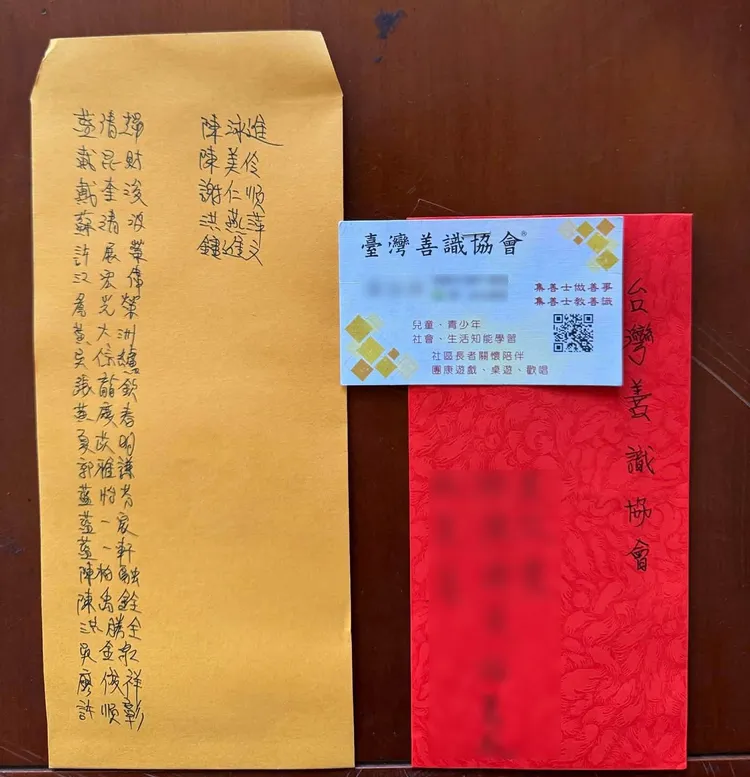 藍清
戴昆財
戴奎浚
蘇清波
許展榮
江宏偉
光榮
黃大洲
吳保
張龍欽
黃慶春
茂明
郭雅謙
藍怡芳
藍一宸
藍一軒
陳柏融
陳禹銓
洪勝全
吳金
廖俊祥
許順彰
陳泳進
陳美伶
謝仁順
洪燕萍
進文
臺灣善識協會®
集善士做善事
集善士教善識
兒童、青少年
社會、生活知能學習
社區長者關懷陪伴
團康遊戲、桌遊、歡唱
台灣善識協會